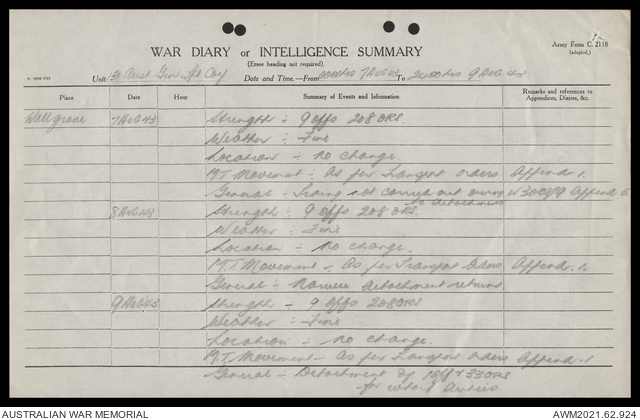 WAR DIARY or INTELLIGENCE SUMMARY
(Erase heading not required).
Army Form C. 2118
(adapted.)
Unit 3 Aust Gen Tpt Coy Date and Time.—From 0001hrs 7 Aug 43 To 2400hrs 9 Aug 43
Place Date Hour Summary of Events and Information Remarks and references to
Appendices, Diaries, &c.
Wallgrove 7 Aug 43 Strength :- 9 offs 208 ORS
Weather :- Fine
Location :- no change
M.T. Movement :- As per Transport orders Append 1.
General :- not carried out owing Append 5
to detachment
8 Aug 43 Strength :- 9 offs 208 ORS.
Weather :- Fine
Location :- no change.
M.T. Movement - As per Transport Orders Append. 1.
General :- detachment returns
9 Aug 43 Strength :- 9 offs 208 ORS
Weather :- Fine
Location :- no change.
M.T. Movement - As per Transport orders Append. 1
General :- Detachment of 1 off & 33 ORS
for duties
AUSTRALIAN WAR MEMORIAL AWM2021.62.924